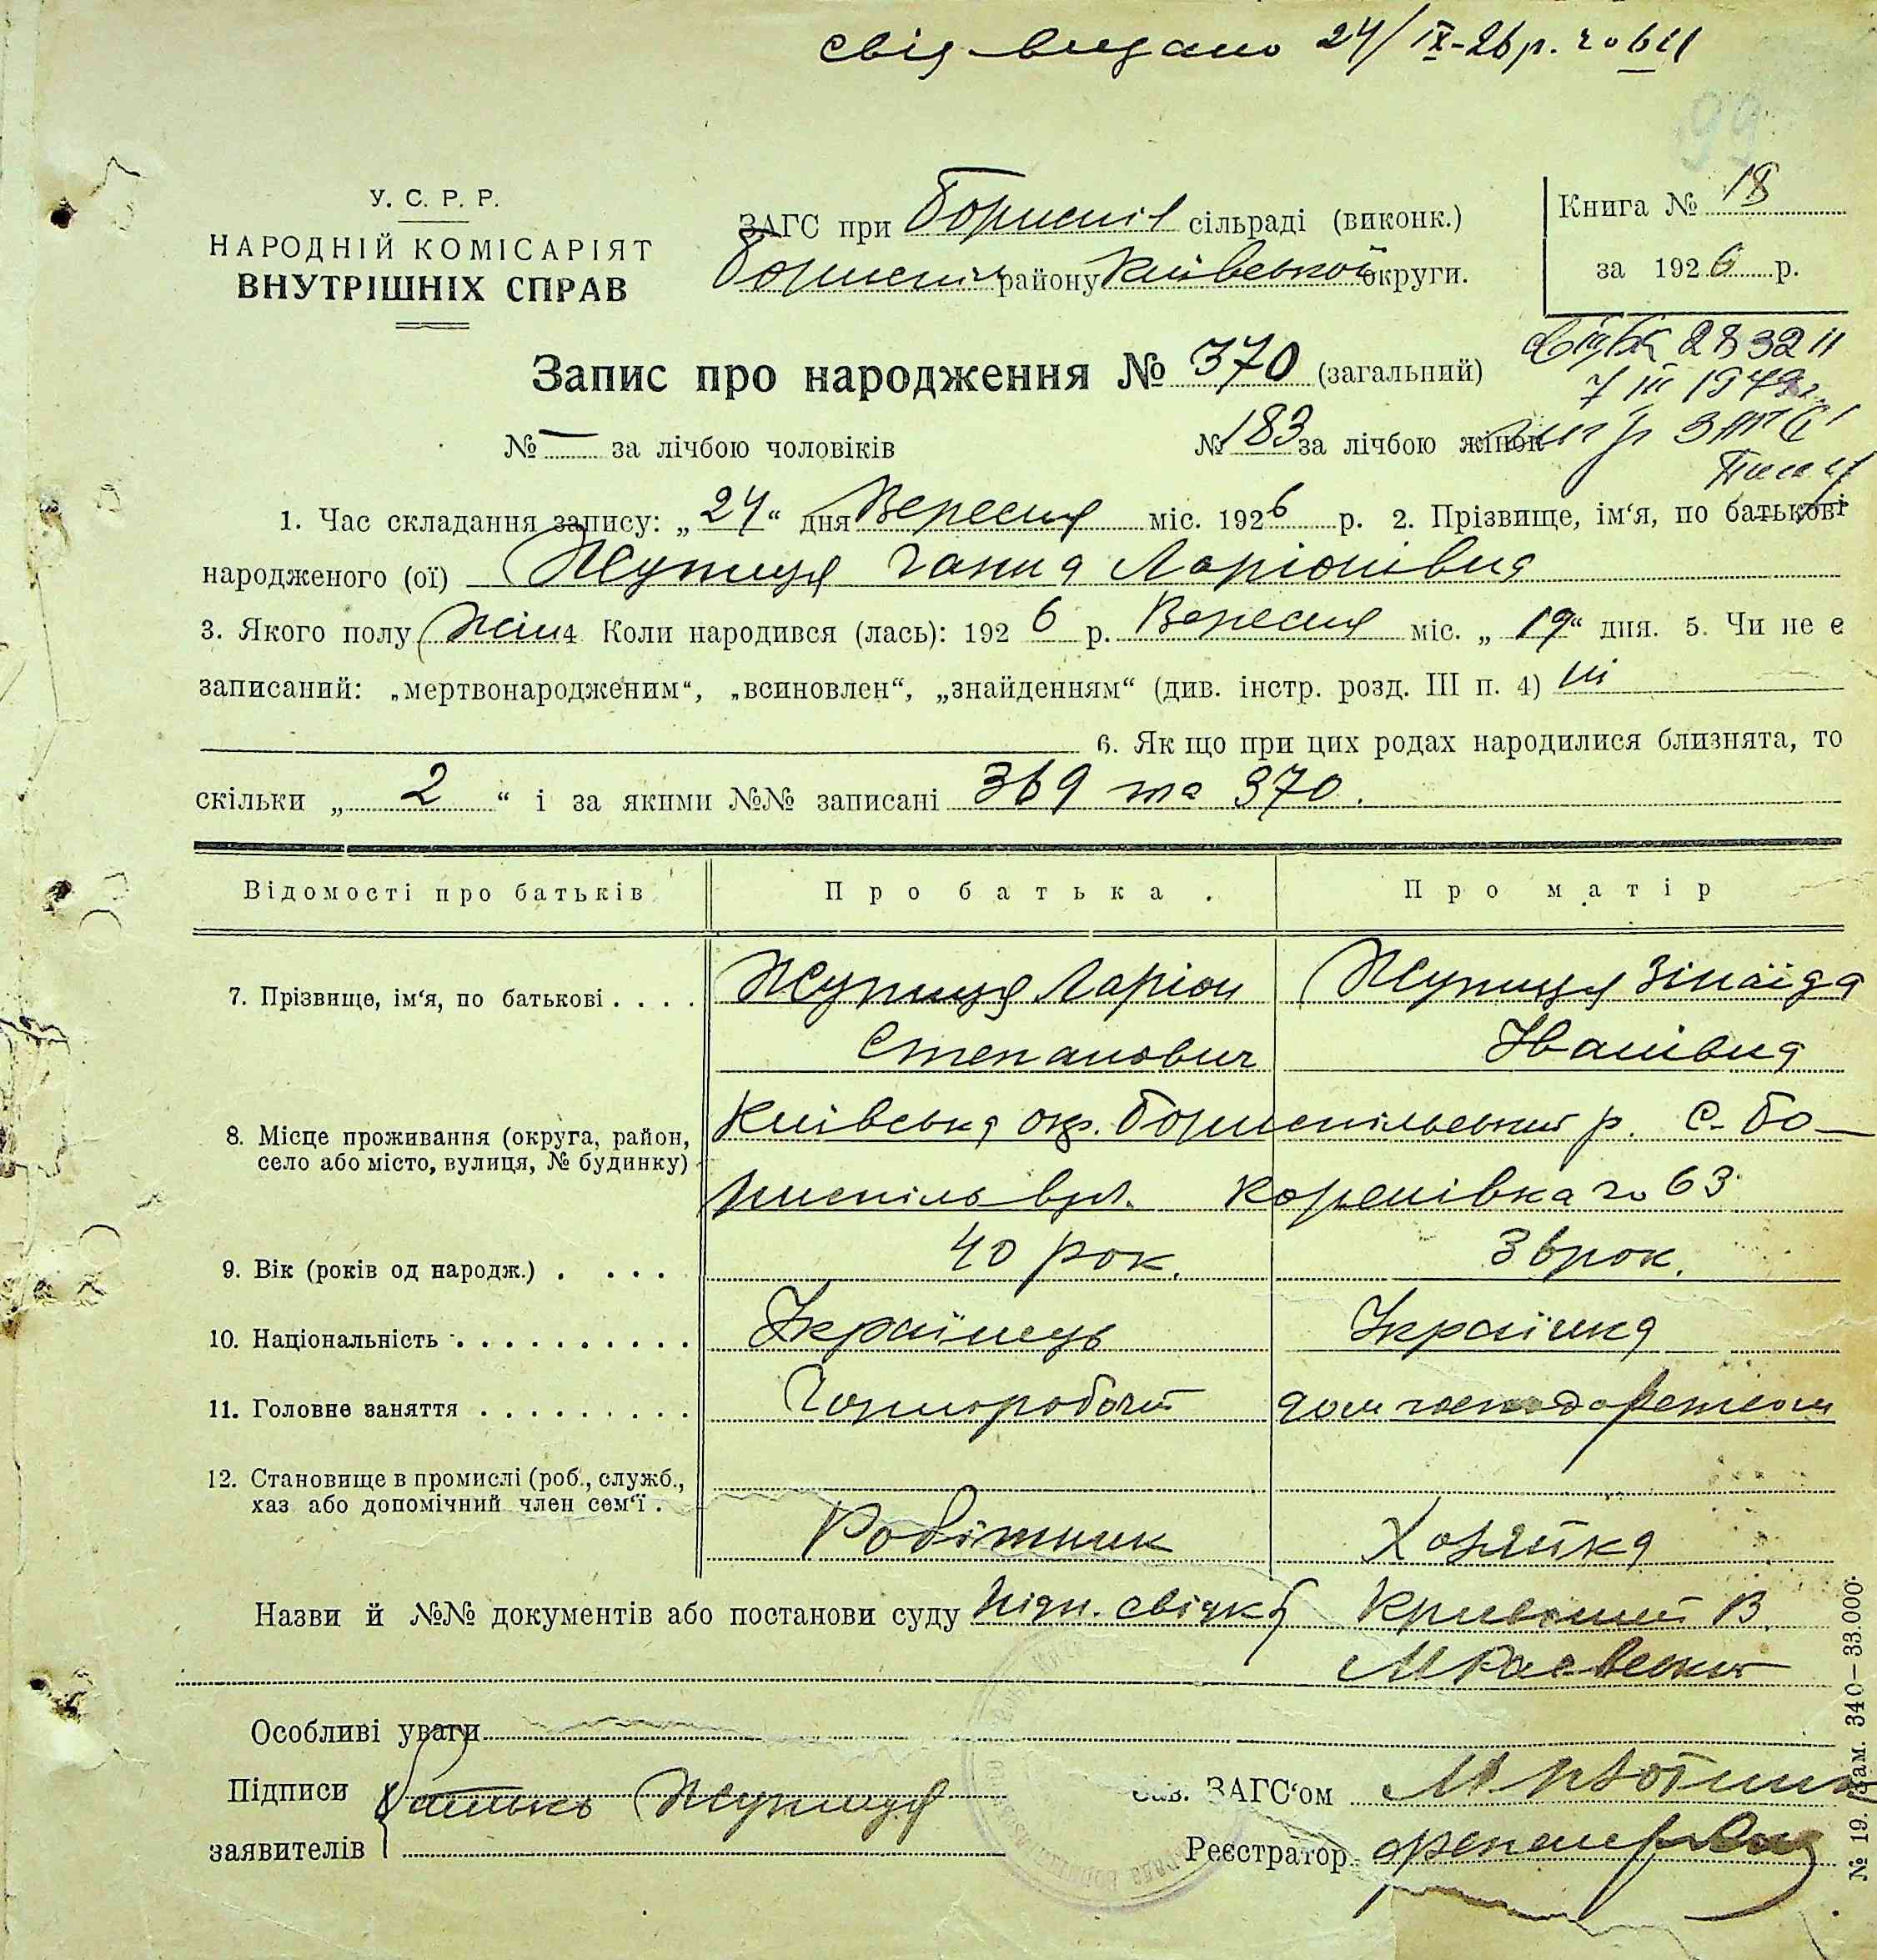 свід видано 24/IX-26 р. №
99
У. С. Р. Р.
НАРОДНІЙ КОМІСАРІЯТ
ВНУТРІШНІХ СПРАВ
ЗАГС при Бориспіл сільраді (виконк.)
Бориспіл району Київської округи.
Книга № 18
за 1926 р.
Запис про народження № 370 (загальний)
7 III 1949
№ — за лічбою чоловіків № 183 за лічбою жінок
1. Час складання запису: „24“ дня Вересня міс. 1926 р. 2. Прізвище, ім‘я, по батькові
народженого (ої) Журиця Ганна Ларіонівна
3. Якого полу Жін 4 Коли народився (лась): 1926 р. Вересня міс. „19“ дня. 5. Чи не є
записаний: „мертвонародженим“, „всиновлен“, „знайденням“ (див. інстр. розд. III п. 4) ні
6. Як що при цих родах народилися близнята, то
скільки „2“ і за якими №№ записані 369 та 370.
Відомості про батьків Про батька. Про матір
7. Прізвище, ім‘я, по батькові . . . . Журиця Ларіон Журиця Зінаїда
Степанович Іванівна
8. Місце проживання (округа, район, Київська окр. Бориспільський р. С. Бо-
село або місто, вулиця, № будинку) риспіль вул. Коренівка № 63
9. Вік (років од народж.) . . . . 40 рок. 36 рок.
10. Національність . . . . . . . . . . Українець Українка
11. Головне заняття . . . . . . . . . Чорноробочий дом господарством
12. Становище в промислі (роб., служб.,
хаз або допомічний член сем‘ї . Робітник Хозяйка
Назви й №№ документів або постанови суду підп. свідків В.
М Раєвский
Особливі уваги
Підписи Батько Журиця Зав. ЗАГС‘ом
заявителів Реєстратор
№ 19. Зам. 340—33.000.